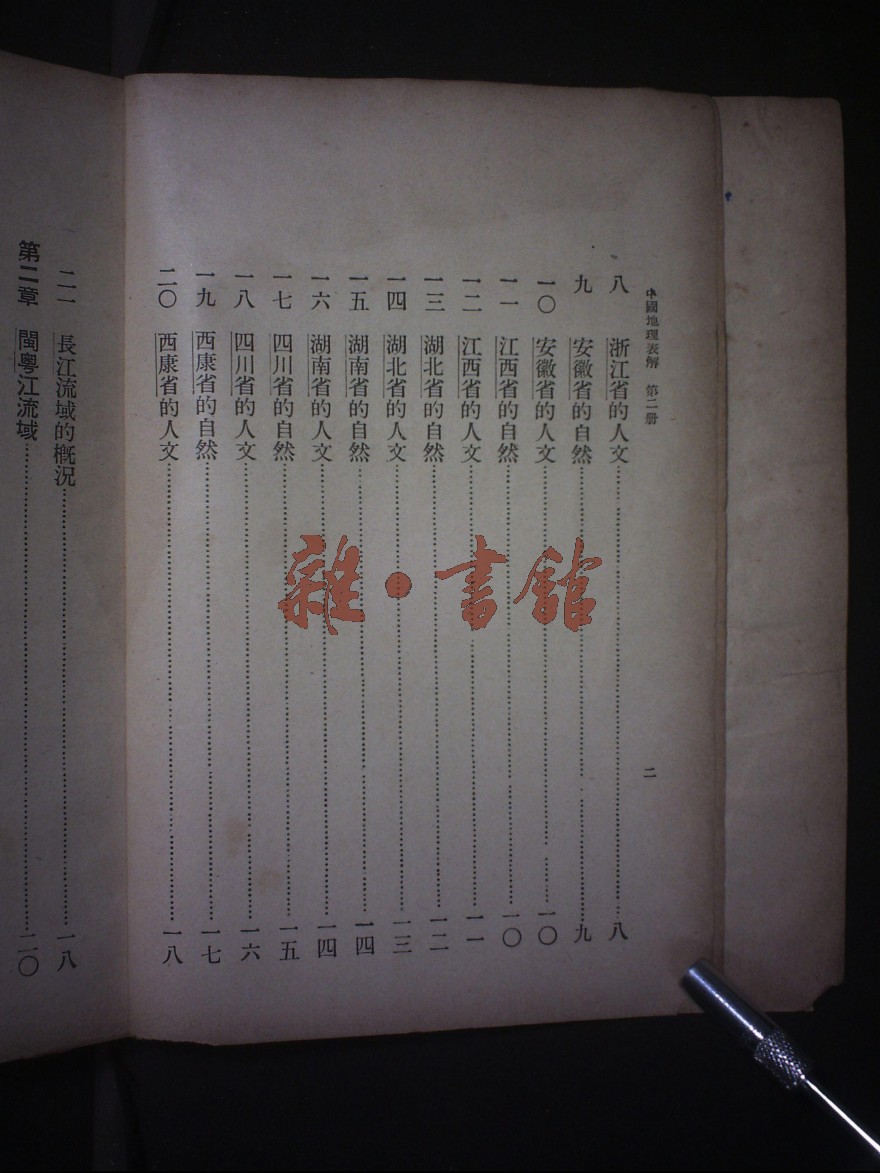 中國地理表解 第二册
二
八 浙江省的人文……八
九 安徽省的自然……九
一〇 安徽省的人文……一〇
一一 江西省的自然……一〇
一二 江西省的人文……一一
一三 湖北省的自然……一二
一四 湖北省的人文……一三
一五 湖南省的自然……一四
一六 湖南省的人文……一四
一七 四川省的自然……一五
一八 四川省的人文……一六
一九 西康省的自然……一七
二〇 西康省的人文……一八
二一 長江流域的概況……一八
第二章 閩粵江流域……二〇
雜·書館